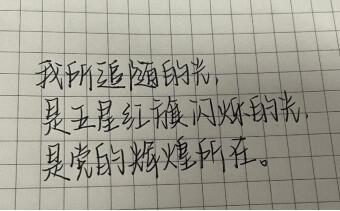 我所追随的光，
是五星红旗闪烁的光，
是党的辉煌所在。